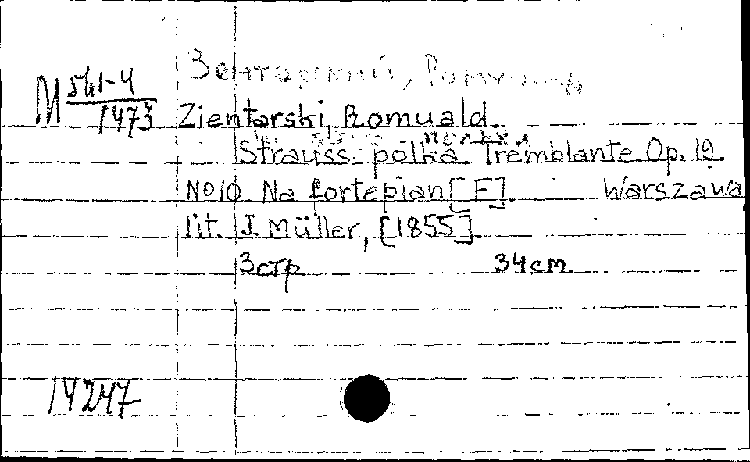 M 541-4
1473
Зентарский, Ромуальд
Zientarski, Romuald.
Strauss polka Tremblante Op. 19
№10. Na fortepian [F]. Warszawa
lit. J. Müller, [1855].
3 стр 34 cm.
14247